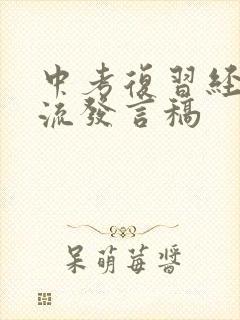 中考復習經
流發言稿
呆萌莓醬